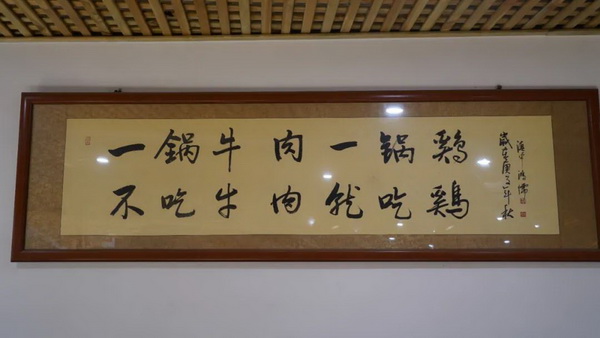 一鍋牛肉一鍋鷄
不吃牛肉就吃鷄
歲在庚子年秋